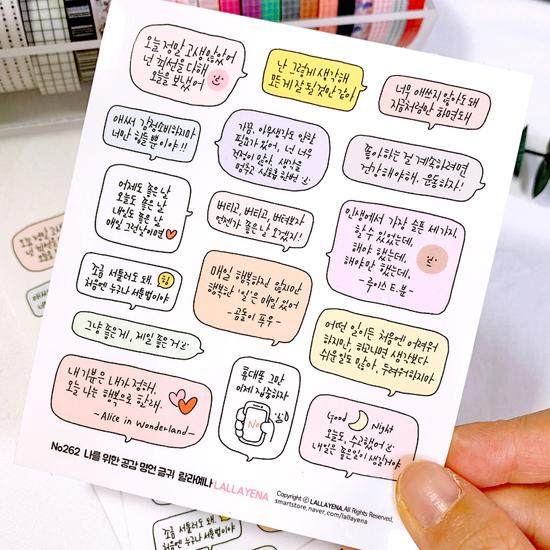 오늘 정말 고생 많았어
넌 최선을 다해
오늘을 보냈어
난 그렇게 생각해
모든게 잘 될 것만 같아
너무 애쓰지 않아도 돼
지금처럼만 하면돼
애써 감정소비하지마
너만 힘들 뿐이야!!
가끔, 아무생각도 안할
필요가 있어, 넌 너무
걱정이 많아. 생각을
멈추고 심호흡 하번
좋아하는 걸 계속하려면
건강해야해. 운동하자!
어제도 좋은 날
오늘도 좋은 날
내일도 좋은 날
매일 그런날이면
버티고, 버티고, 버텨보자
언젠가 좋은날 오겠지!
인생에서 가장 슬픈 세가지
할 수 있었는데,
해야 했는데,
해야만 했는데,
-루이스 E.분-
조금 서툴러도 돼. 힘
처음엔 누구나 서툴법이야
매일 행복하진 않지만
행복한 '일'은 매일 있어
-곰돌이 푸우-
어떤 일이든 처음에 어려워
하지만, 하고나면 생각보다
쉬운일도 많아. 두려워하지마
그냥 좋은게, 제일 좋은거
내 기분은 내가 정해.
오늘 나는 행복으로 할래.
-Alice in Wonderland-
휴대폰 그만
이제 집중하자
No
Good Night
오늘도, 수고했어
내일은 좋은일이 생길거야
No262 나를 위한 공감 명언 글귀 랄라예나 LALLAYENA
Copyright ⓒ LALLAYENA.All Rights Reserved.
smartstore.naver.com/lallayena